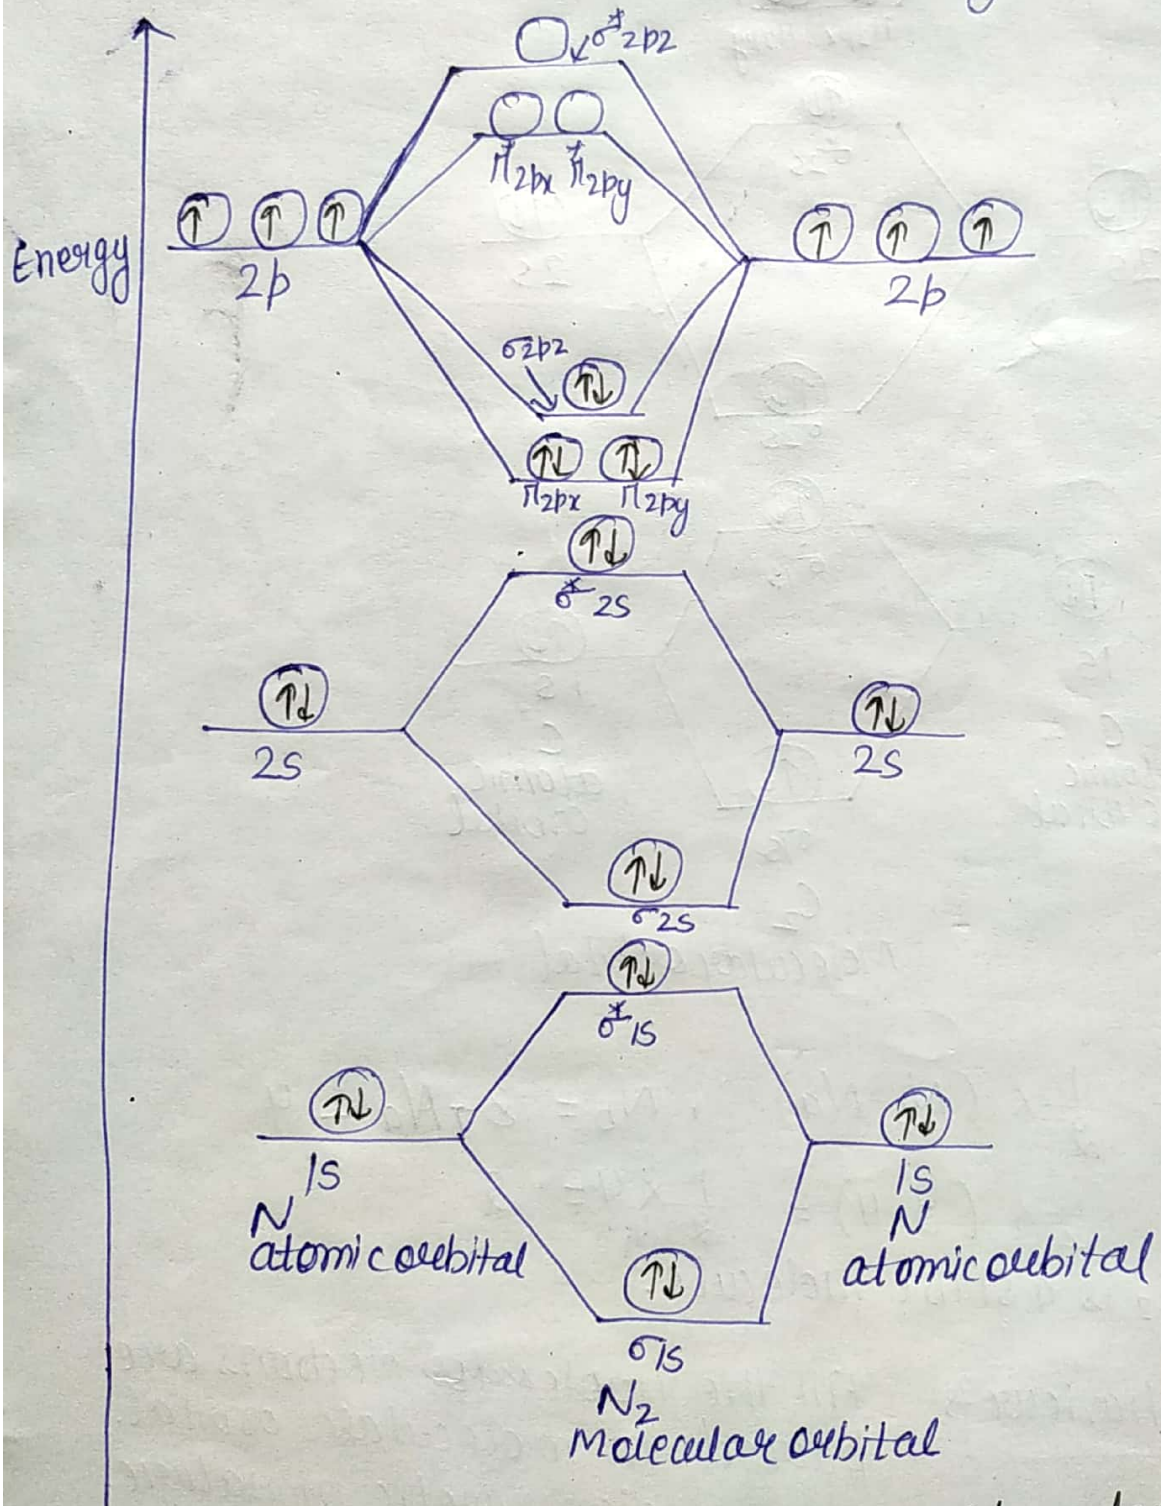 σ*2pz
π*2px π*2py
Energy
2p
2p
σ2pz
π2px π2py
σ*2s
2s
2s
σ2s
σ*1s
1s
1s
N
N
atomic orbital
atomic orbital
σ1s
N2
Molecular orbital